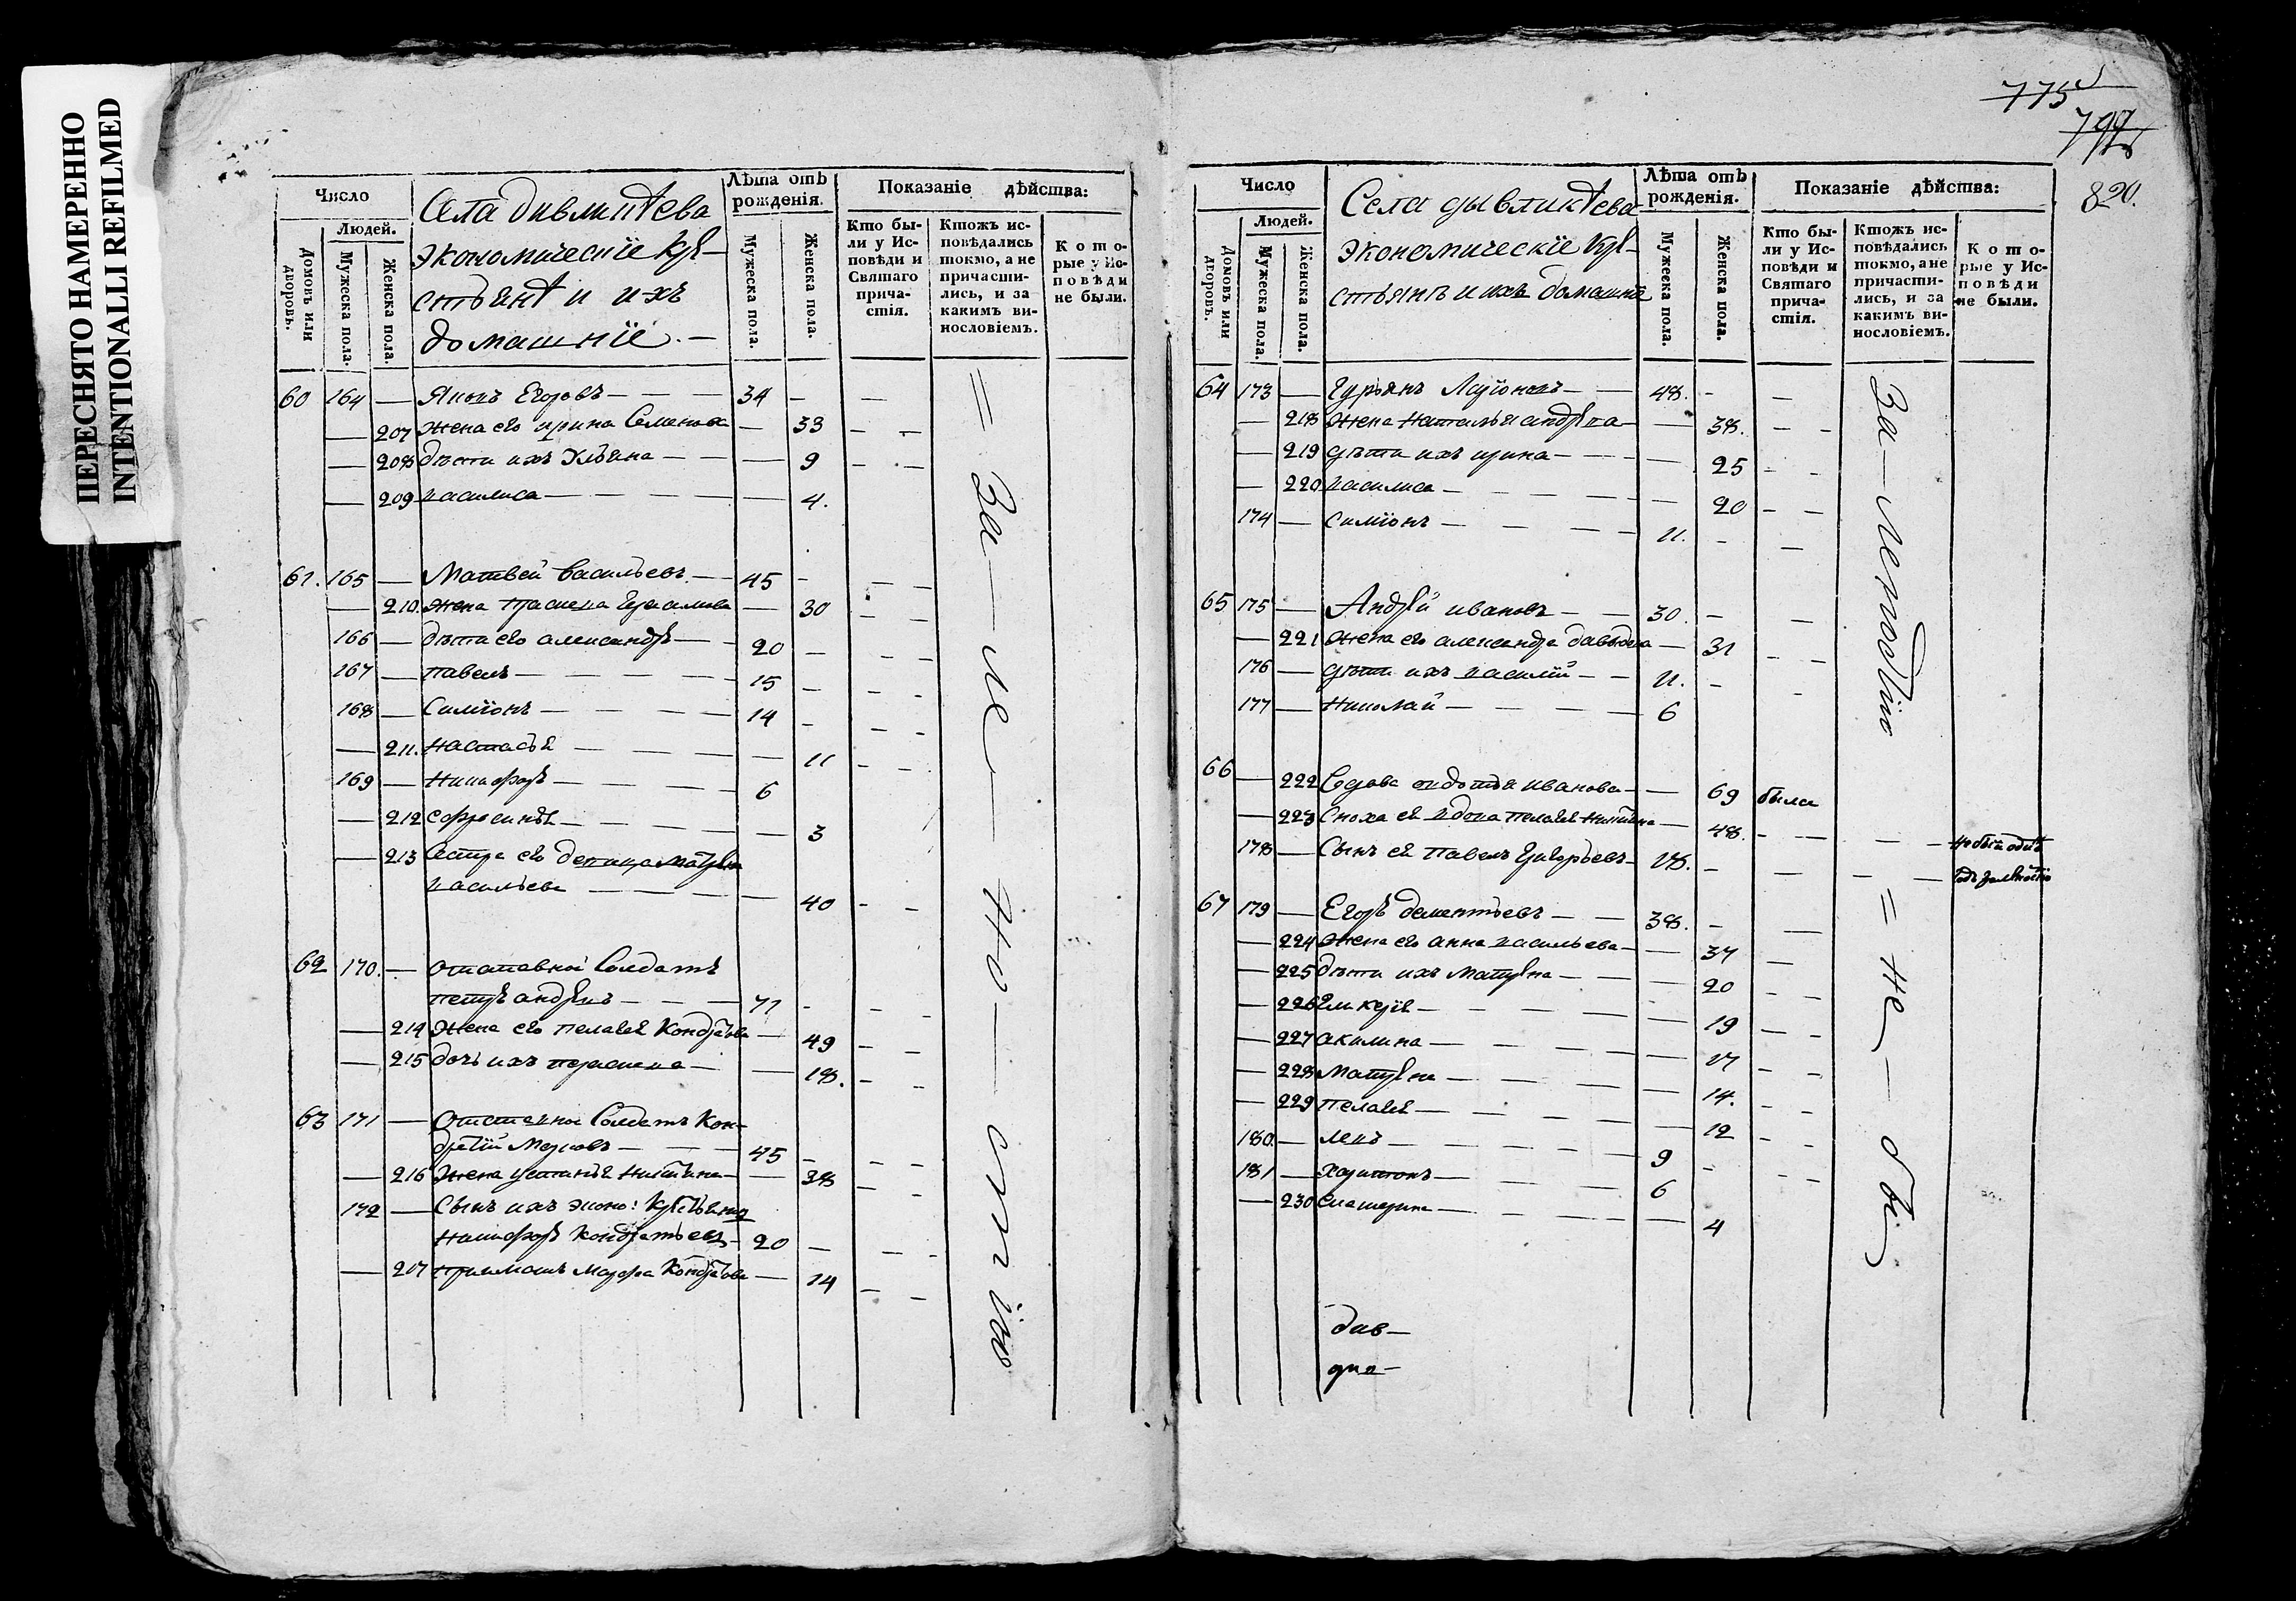 ПЕРЕСНЯТО НАМЕРЕННО
INTENTIONALLI REFILMED
Число
Людей.
Домовъ или дворовъ.
Мужеска пола.
Женска пола.
Села
экономическіе кре-
стьянѣ и ихъ
домашніе. —
Лѣта отъ рожденія.
Мужеска пола.
Женска пола.
Показаніе дѣйства:
Кто бы-
ли у Ис-
повѣди и
Святаго
прича-
стія.
Ктожъ ис-
повѣдались
токмо, а не
причасти-
лись, и за
какимъ ви-
нословіемъ.
Кото-
рые у Ис-
повѣди
не были.
60 164 — Яковъ Егоровъ — 34 —
— 207 жена его ирина Семенова — 33
— 208 дѣти ихъ Ульяна — 9
— 209 василиса — 4.
61. 165 — Матвей васильевъ — 45 —
— 210. жена — 30
166 — дѣти его александръ — 20 —
167 — павелъ — 15 —
168 — Симіонъ — 14 —
— 211. настасья — 11
169 — никифоръ — 6
— 212 ефросинья — 3
— 213 Сестра его девица матрена
васильева — 40
62 170. — отставной Солдатъ
петръ андреевъ — 71 —
— 214 жена его пелагея Кондратьева — 49
— 215 дочь ихъ — 18.
63 171 — Отставной Солдатъ Кон-
дратій Марковъ — 45 —
— 216 жена устинья никитина — 38
172 — Сынъ ихъ эконо: крестьянинъ
никифоръ кондратьевъ — 20 —
— 217 марфа Кондратьева — 14
= За — не — но — стію
775
799
820.
Число
Людей.
Домовъ или дворовъ.
Мужеска пола.
Женска пола.
Села
экономическіе кре-
стьянѣ и ихъ домашніе
Лѣта отъ рожденія.
Мужеска пола.
Женска пола.
Показаніе дѣйства:
Кто бы-
ли у Ис-
повѣди и
Святаго
прича-
стія.
Ктожъ ис-
повѣдались
токмо, а не
причасти-
лись, и за
какимъ ви-
нословіемъ.
Кото-
рые у Ис-
повѣди
не были.
64 173 — Гурьянъ — 48. —
— 218 жена наталья андреева — 38.
— 219 дѣти ихъ ирина — 25
— 220 василиса — 20
174 — Симіонъ — 11. —
65 175 — Андрей ивановъ — 30. —
— 221 жена его александра давыдова — 31
176 — дѣти ихъ василій — 11. —
177 — николай — 6
66 — 222 вдова авдотья иванова — 69 была
— 223 Сноха ея вдова пелагея никитина — 48.
178 — Сынъ ея павелъ Григорьевъ — 18. —
67 179 — Егоръ дементьевъ — 38. —
— 224 жена его анна васильева — 37
— 225 дѣти ихъ матрена — 20
— 226 — 19
— 227 акилина — 17
— 228 матрена — 14.
— 229 пелагея — 12
180. — левъ — 9 —
181 — харитонъ — 6
— 230 екатерина — 4
За —
= не —
див —